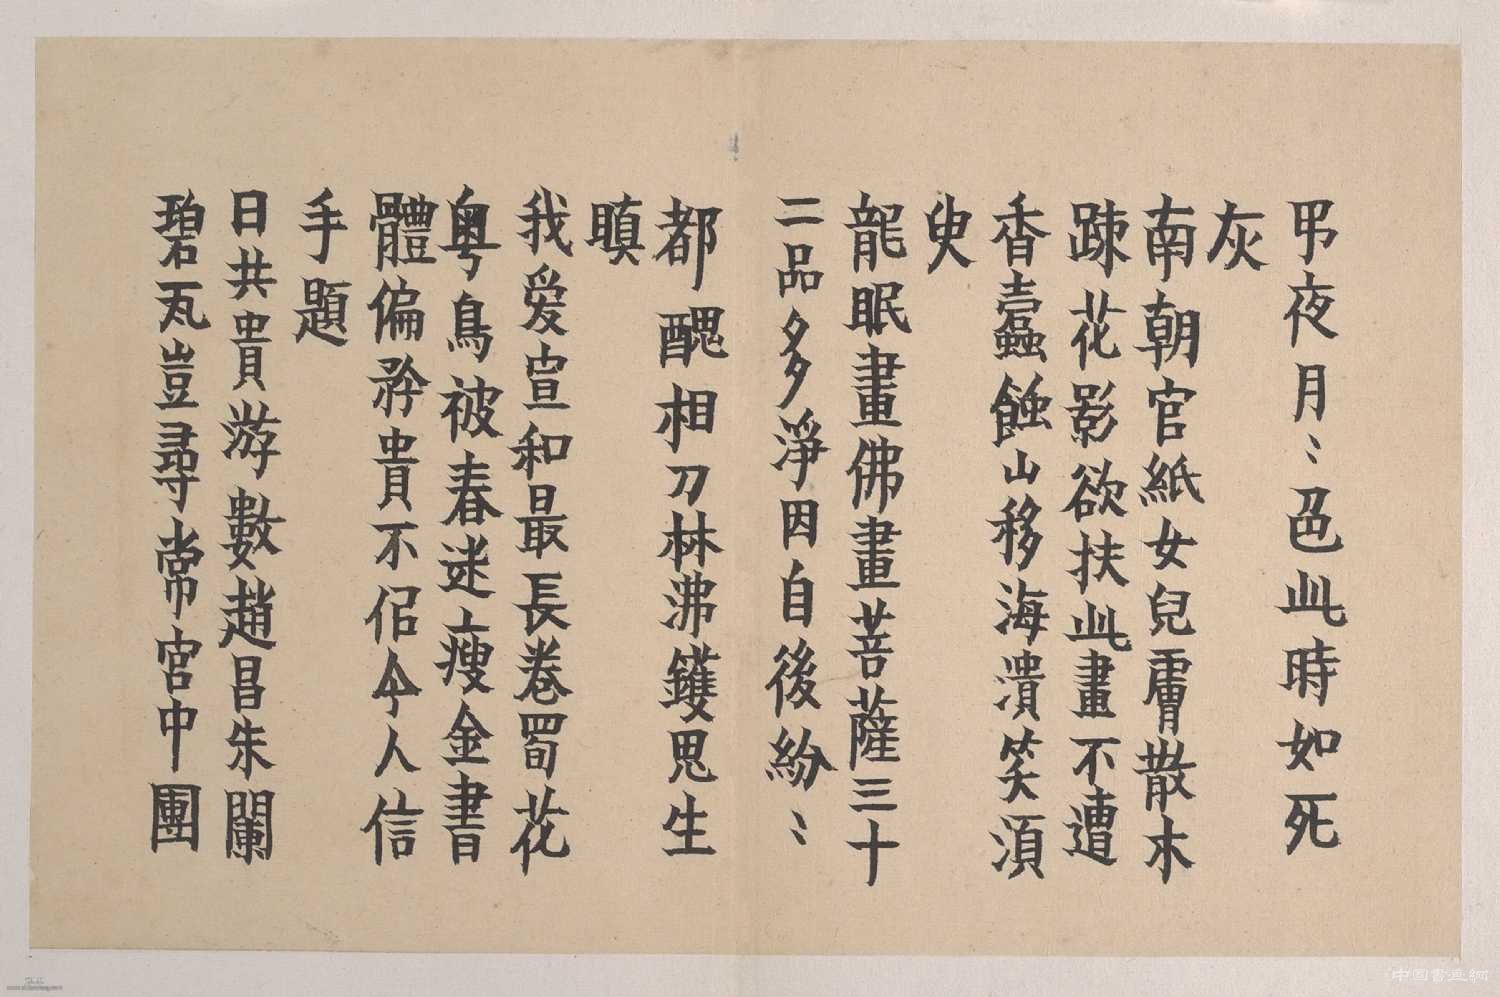 弔夜月〻色此時如死
灰
南朝官紙女兒膚散木
疎花影欲扶此畫不遭
香蠹蝕山移海潰笑須
臾
龍眠畫佛畫菩薩三十
二品多淨因自後紛〻
都醜相刀林沸鑊思生
瞋
我爱宣和最長卷蜀花
粵鳥被春迷瘦金書
體偏矜貴不佀今人信
手題
日共貴游數趙昌朱闌
碧瓦豈尋常宮中團
中国書画網